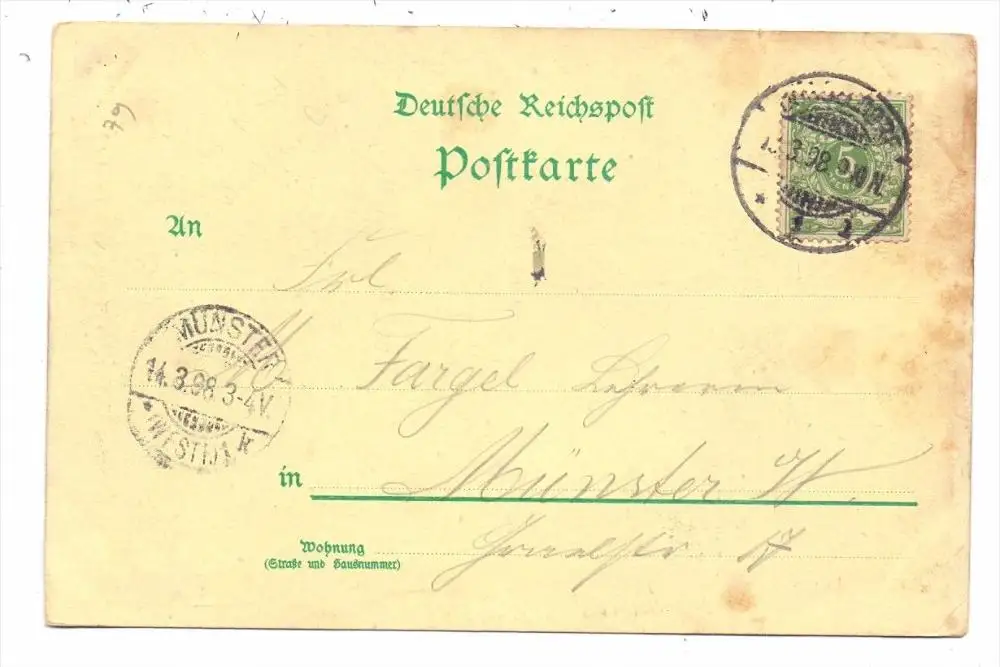 79
Deutsche Reichspost
Postkarte
5
13.3.98
1 2
An
Frl.
M. Fargel Lehrerin
MÜNSTER
14.3.98 3-4V.
* (WESTF.) 1
in Münster W.
Wohnung
(Straße und Hausnummer)
17